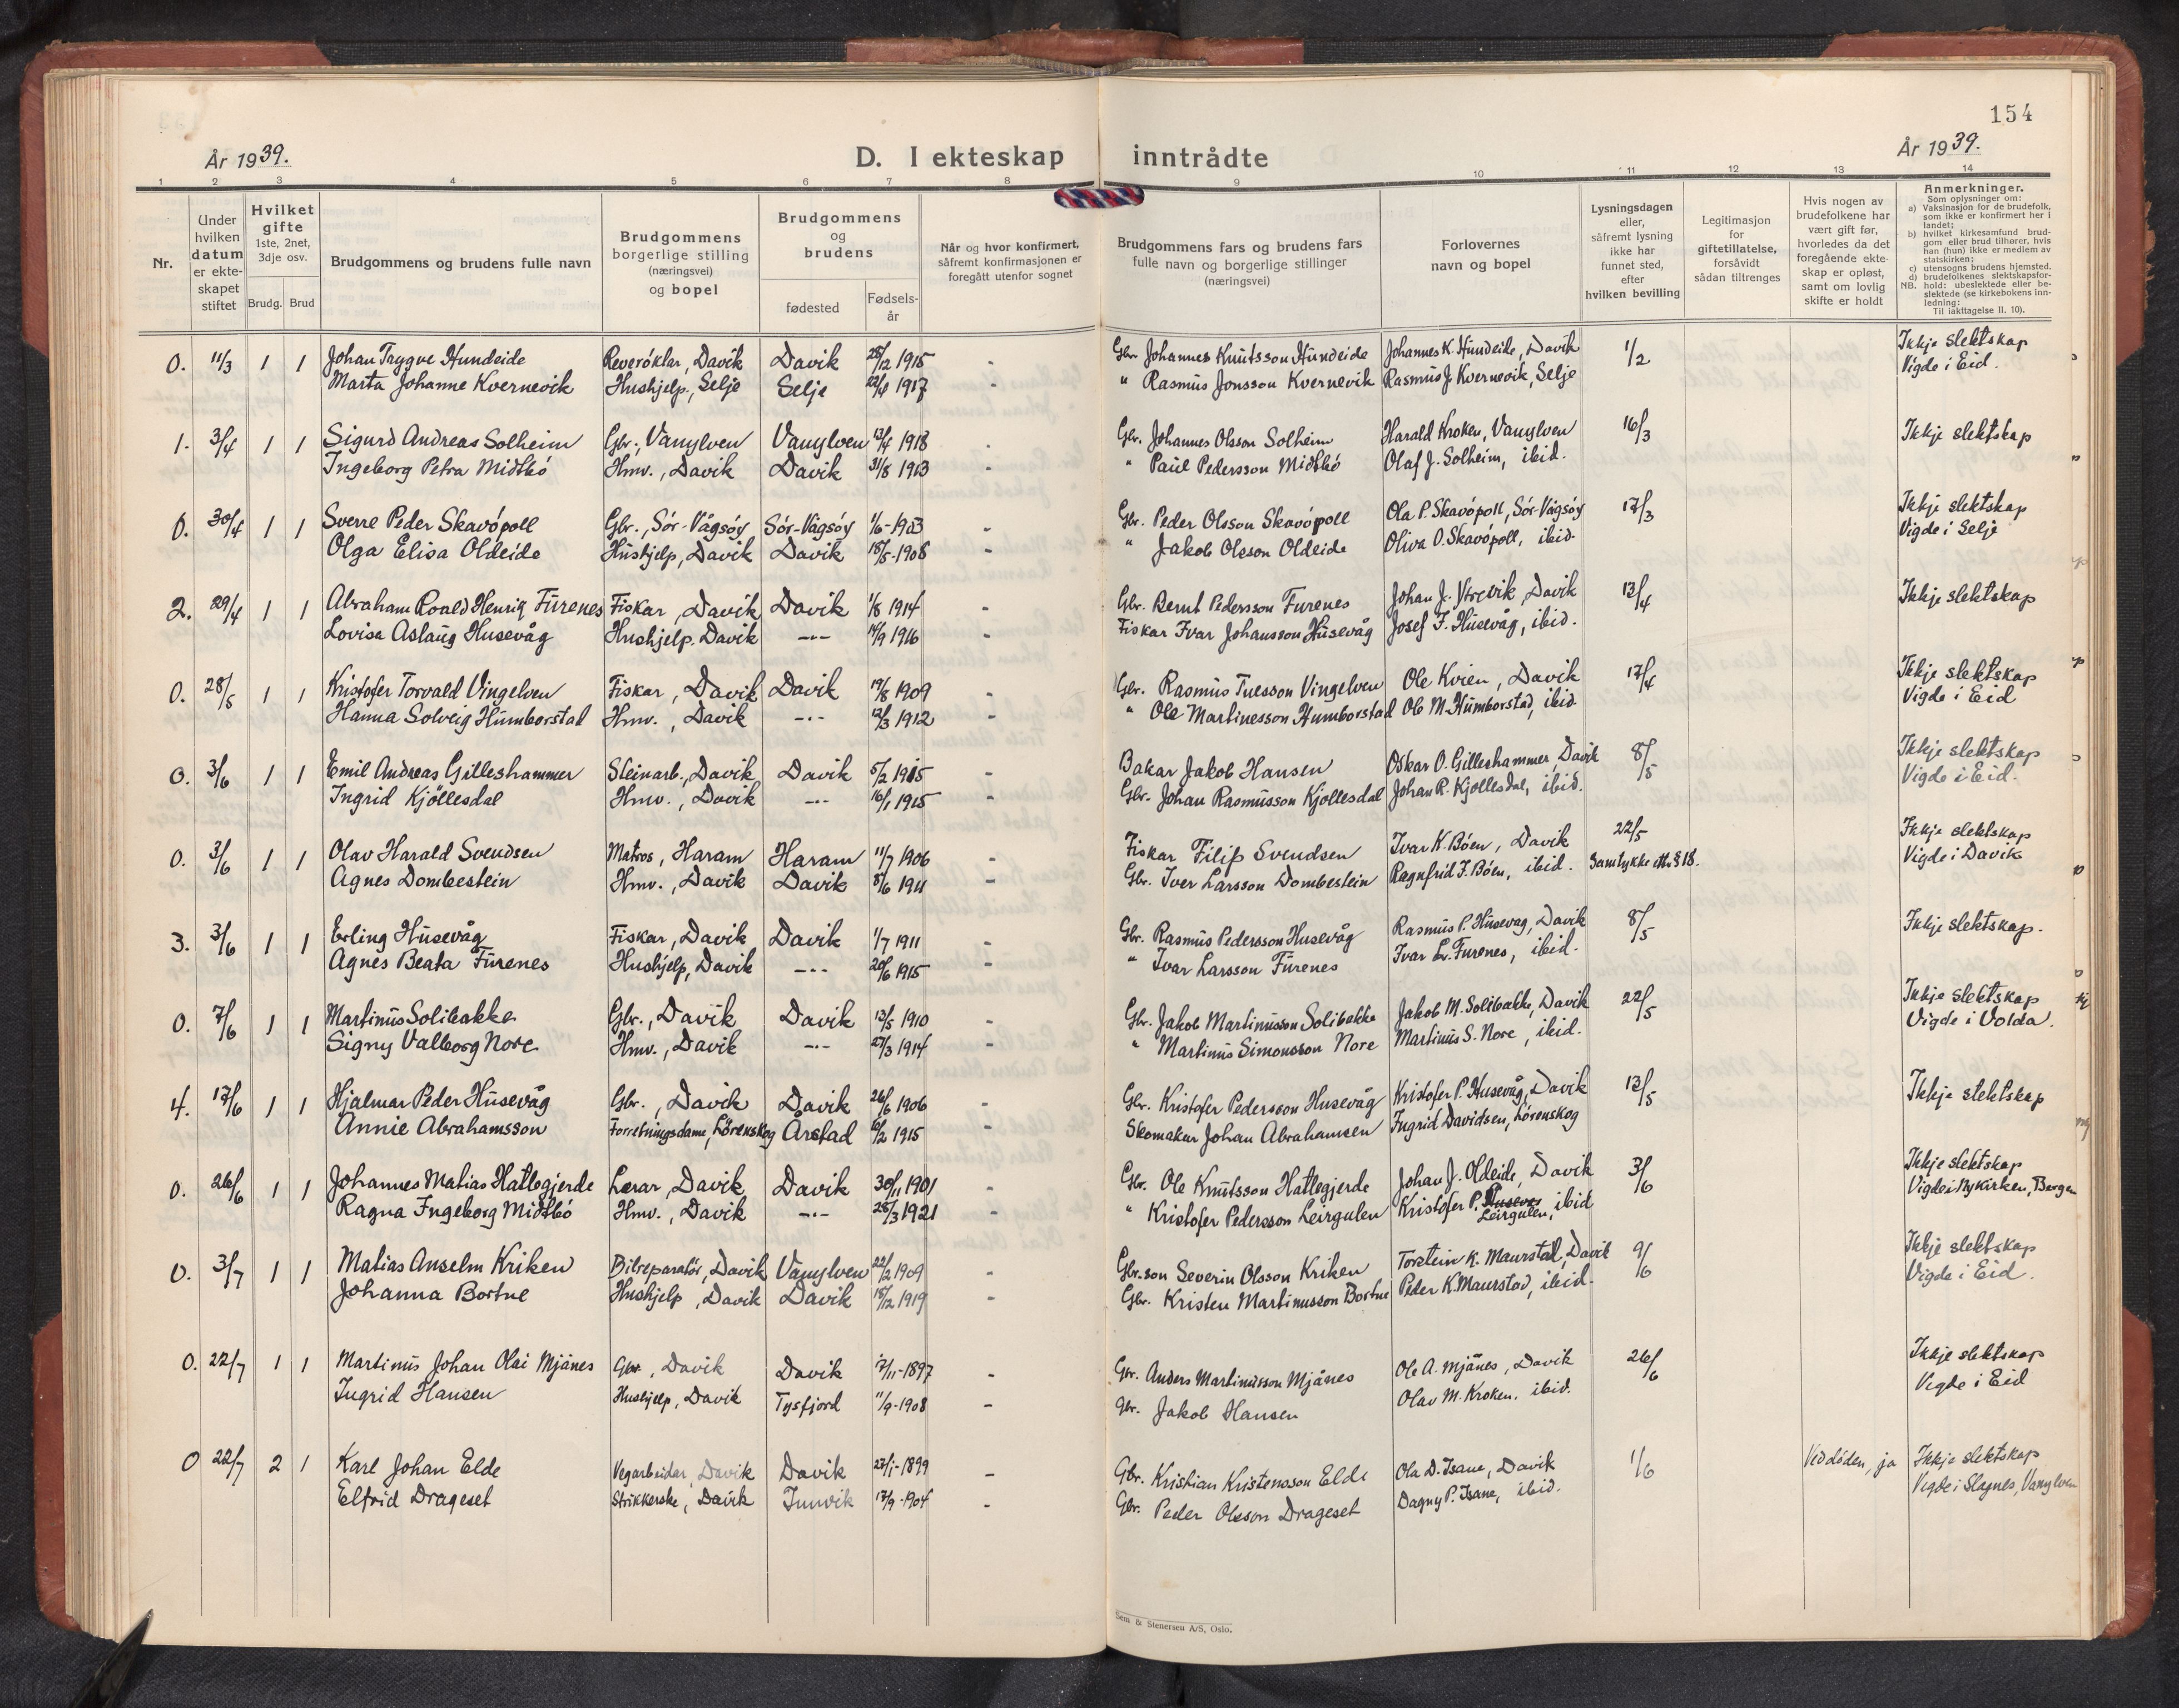 154
År 1939.
D. I ekteskap inntrådte
År 1939.
1 2 3 4 5 6 7 8 9 10 11 12 13 14
Nr.
Under hvilken datum er ekteskapet stiftet
Hvilket gifte 1ste, 2net, 3dje osv.
Brudg. Brud
Brudgommens og brudens fulle navn
Brudgommens borgerlige stilling (næringsvei) og bopel
Brudgommens og brudens
fødested
Fødselsår
Når og hvor konfirmert, såfremt konfirmasjonen er foregått utenfor sognet
Brudgommens fars og brudens fars fulle navn og borgerlige stillinger (næringsvei)
Forlovernes navn og bopel
Lysningsdagen eller, såfremt lysning ikke har funnet sted, efter hvilken bevilling
Legitimasjon for giftetillatelse, forsåvidt sådan tiltrenges
Hvis nogen av brudefolkene har vært gift før, hvorledes da det foregående ekteskap er opløst, samt om lovlig skifte er holdt
Anmerkninger.
Som oplysninger om:
a) Vaksinasjon for de brudefolk, som ikke er konfirmert her i landet;
b) hvilket kirkesamfund brudgom eller brud tilhører, hvis han (hun) ikke er medlem av statskirken;
c) utensogns brudens hjemsted.
d) brudefolkenes slektskapsforhold: ubeslektede eller beslektede (se kirkebokens innledning:
NB.
Til iakttagelse II. 10).
0. 11/3 1 1 Johan Trygve Hundeide Reverøktar, Davik Davik 28/12 1915 - Gbr. Johannes Knutsson Hundeide Johannes K. Hundeide, Davik 1/2 Ikkje slektskap
Marta Johanne Kvernevik Hushjelp, Selje Selje 22/4 1917 - " Rasmus Jonsson Kvernevik Rasmus J. Kvernevik, Selje Vigde i Eid.
1. 3/4 1 1 Sigurd Andreas Solheim Gbr., Vanylven Vanylven 13/4 1918 - Gbr. Johannes Olsson Solheim Harald Kroken, Vanylven 16/3 Ikkje slektskap
Ingeborg Petra Midtbö Hmv., Davik Davik 31/8 1913 - " Paul Pedersson Midtbö Olaf J. Solheim, ibid.
0. 30/4 1 1 Sverre Peder Skavöpoll Gbr., Sör-Vågsöy Sör-Vågsöy 1/6-1903 - Gbr. Peder Olsson Skavöpoll Ola P. Skavöpoll, Sör-Vågsöy 17/3 Ikkje slektskap
Olga Elisa Oldeide Hushjelp, Davik Davik 18/5-1908 - " Jakob Olsson Oldeide Oliva O. Skavöpoll, ibid. Vigde i Selje
2. 29/4 1 1 Abraham Roald Henrik Furenes Fiskar, Davik Davik 1/8 1914 - Gbr. Bernt Pedersson Furenes Johan J. Ytrevik, Davik 13/4 Ikkje slektskap
Lovisa Aslaug Husevåg Hushjelp. Davik -.- 14/9 1916 - Fiskar Ivar Johansson Husevåg Josef I. Husevåg, ibid.
0. 28/5 1 1 Kristofer Torvald Vingelven Fiskar, Davik Davik 19/8 1909 Gbr. Rasmus Tuesson Vingelven Ole Kvien, Davik 17/4 Ikkje slektskap
Hanna Solveig Humborstad Hmv., Davik -.- 12/3 1912 - " Ole Martinesson Humborstad Ole M. Humborstad, ibid. Vigde i Eid
0. 3/6 1 1 Emil Andreas Gilleshammer Steinarb., Davik Davik 5/2 1915 - Bakar Jakob Hansen Oskar O. Gilleshammer Davik 8/5 Ikkje slektskap
Ingrid Kjöllesdal Hmv., Davik -.- 16/1 1915 - Gbr. Johan Rasmusson Kjöllesdal Johan R. Kjöllesdal, ibid. Vigde i Eid.
0. 3/6 1 1 Olav Harald Svendsen Matros, Haram Haram 11/7 1906 - Fiskar Filip Svendsen Ivar K. Böen, Davik 22/5 Ikkje slektskap
Agnes Dombestein Hmv., Davik Davik 8/6 1911 - Gbr. Iver Larsson Dombestein Ragnfrid I. Böen, ibid. Samtykke ett. § 18. Vigde i Davik
3. 3/6 1 1 Erling Husevåg Fiskar, Davik Davik 1/7 1911 - Gbr. Rasmus Pedersson Husevåg Rasmus P. Husevåg, Davik 8/5 Ikkje slektskap.
Agnes Beata Furenes Hushjelp, Davik -.- 20/6 1915 - " Ivar Larsson Furenes Ivar L. Furenes, ibid.
0. 7/6 1 1 Martinus Solibakke Gbr., Davik Davik 13/5 1910 - Gbr. Jakob Martinusson Solibakke Jakob M. Solibakke, Davik 22/5 Ikkje slektskap
Signy Valborg Nore Hmv., Davik -.- 27/3 1914 - " Martinus Simonsson Nore Martinus S. Nore, ibid. Vigde i Volda.
4. 17/6 1 1 Hjalmar Peder Husevåg Gbr., Davik Davik 26/6 1906 - Gbr. Kristofer Pedersson Husevåg Kristofer P. Husevåg, Davik 13/5 Ikkje slektskap
Annie Abrahamsson Forretningsdame, Lörenskog Årstad 6/2 1915 - Skomakar Johan Abrahamsen Ingrid Davidsen, Lörenskog
0. 26/6 1 1 Johannes Matias Hatlegjerde Lærar, Davik Davik 30/11 1901 - Gbr. Ole Knutsson Hatlegjerde Johan J. Oldeide, Davik 3/6 Ikkje slektskap
Ragna Ingeborg Midtbö Hmv., Davik -.- 28/3 1921 - " Kristofer Pedersson Leirgulen Kristofer P. Leirgulen, ibid Vigde i Nykirken, Bergen
0. 3/7 1 1 Matias Anselm Kriken Bilreparatör, Davik Vanylven 22/2 1909 - Gbr.son Severin Olsson Kriken Torstein K. Maurstad, Davik 9/6 Ikkje slektskap
Johanna Bortne Hushjelp, Davik Davik 18/12 1919 - Gbr. Kristen Martinusson Bortne Peder K. Maurstad, ibid. Vigde i Eid.
0. 22/7 1 1 Martinus Johan Olai Mjånes Gbr, Davik Davik 7/11-1897 - Gbr. Anders Martinusson Mjånes Ole A. Mjånes, Davik 26/6 Ikkje slektskap
Ingrid Hansen Hushjelp, Davik Tysfjord 11/9-1908 - Gbr. Jakob Hansen Olav M. Kroken. ibid. Vigde i Eid
0 22/7 2 1 Karl Johan Elde Vegarbeidar, Davik Davik 27/1-1899 - Gbr. Kristian Kristensson Elde Ola D. Isane, Davik 1/6 Ved döden, ja Ikkje slektskap
Elfrid Drageset Strikkerske, Davik Innvik 17/9-1904 - Gbr. Peder Olsson Drageset Dagny P. Isane, ibid. Vigde i Slagnes, Vanylven
Sem & Stenersen A/S, Oslo.